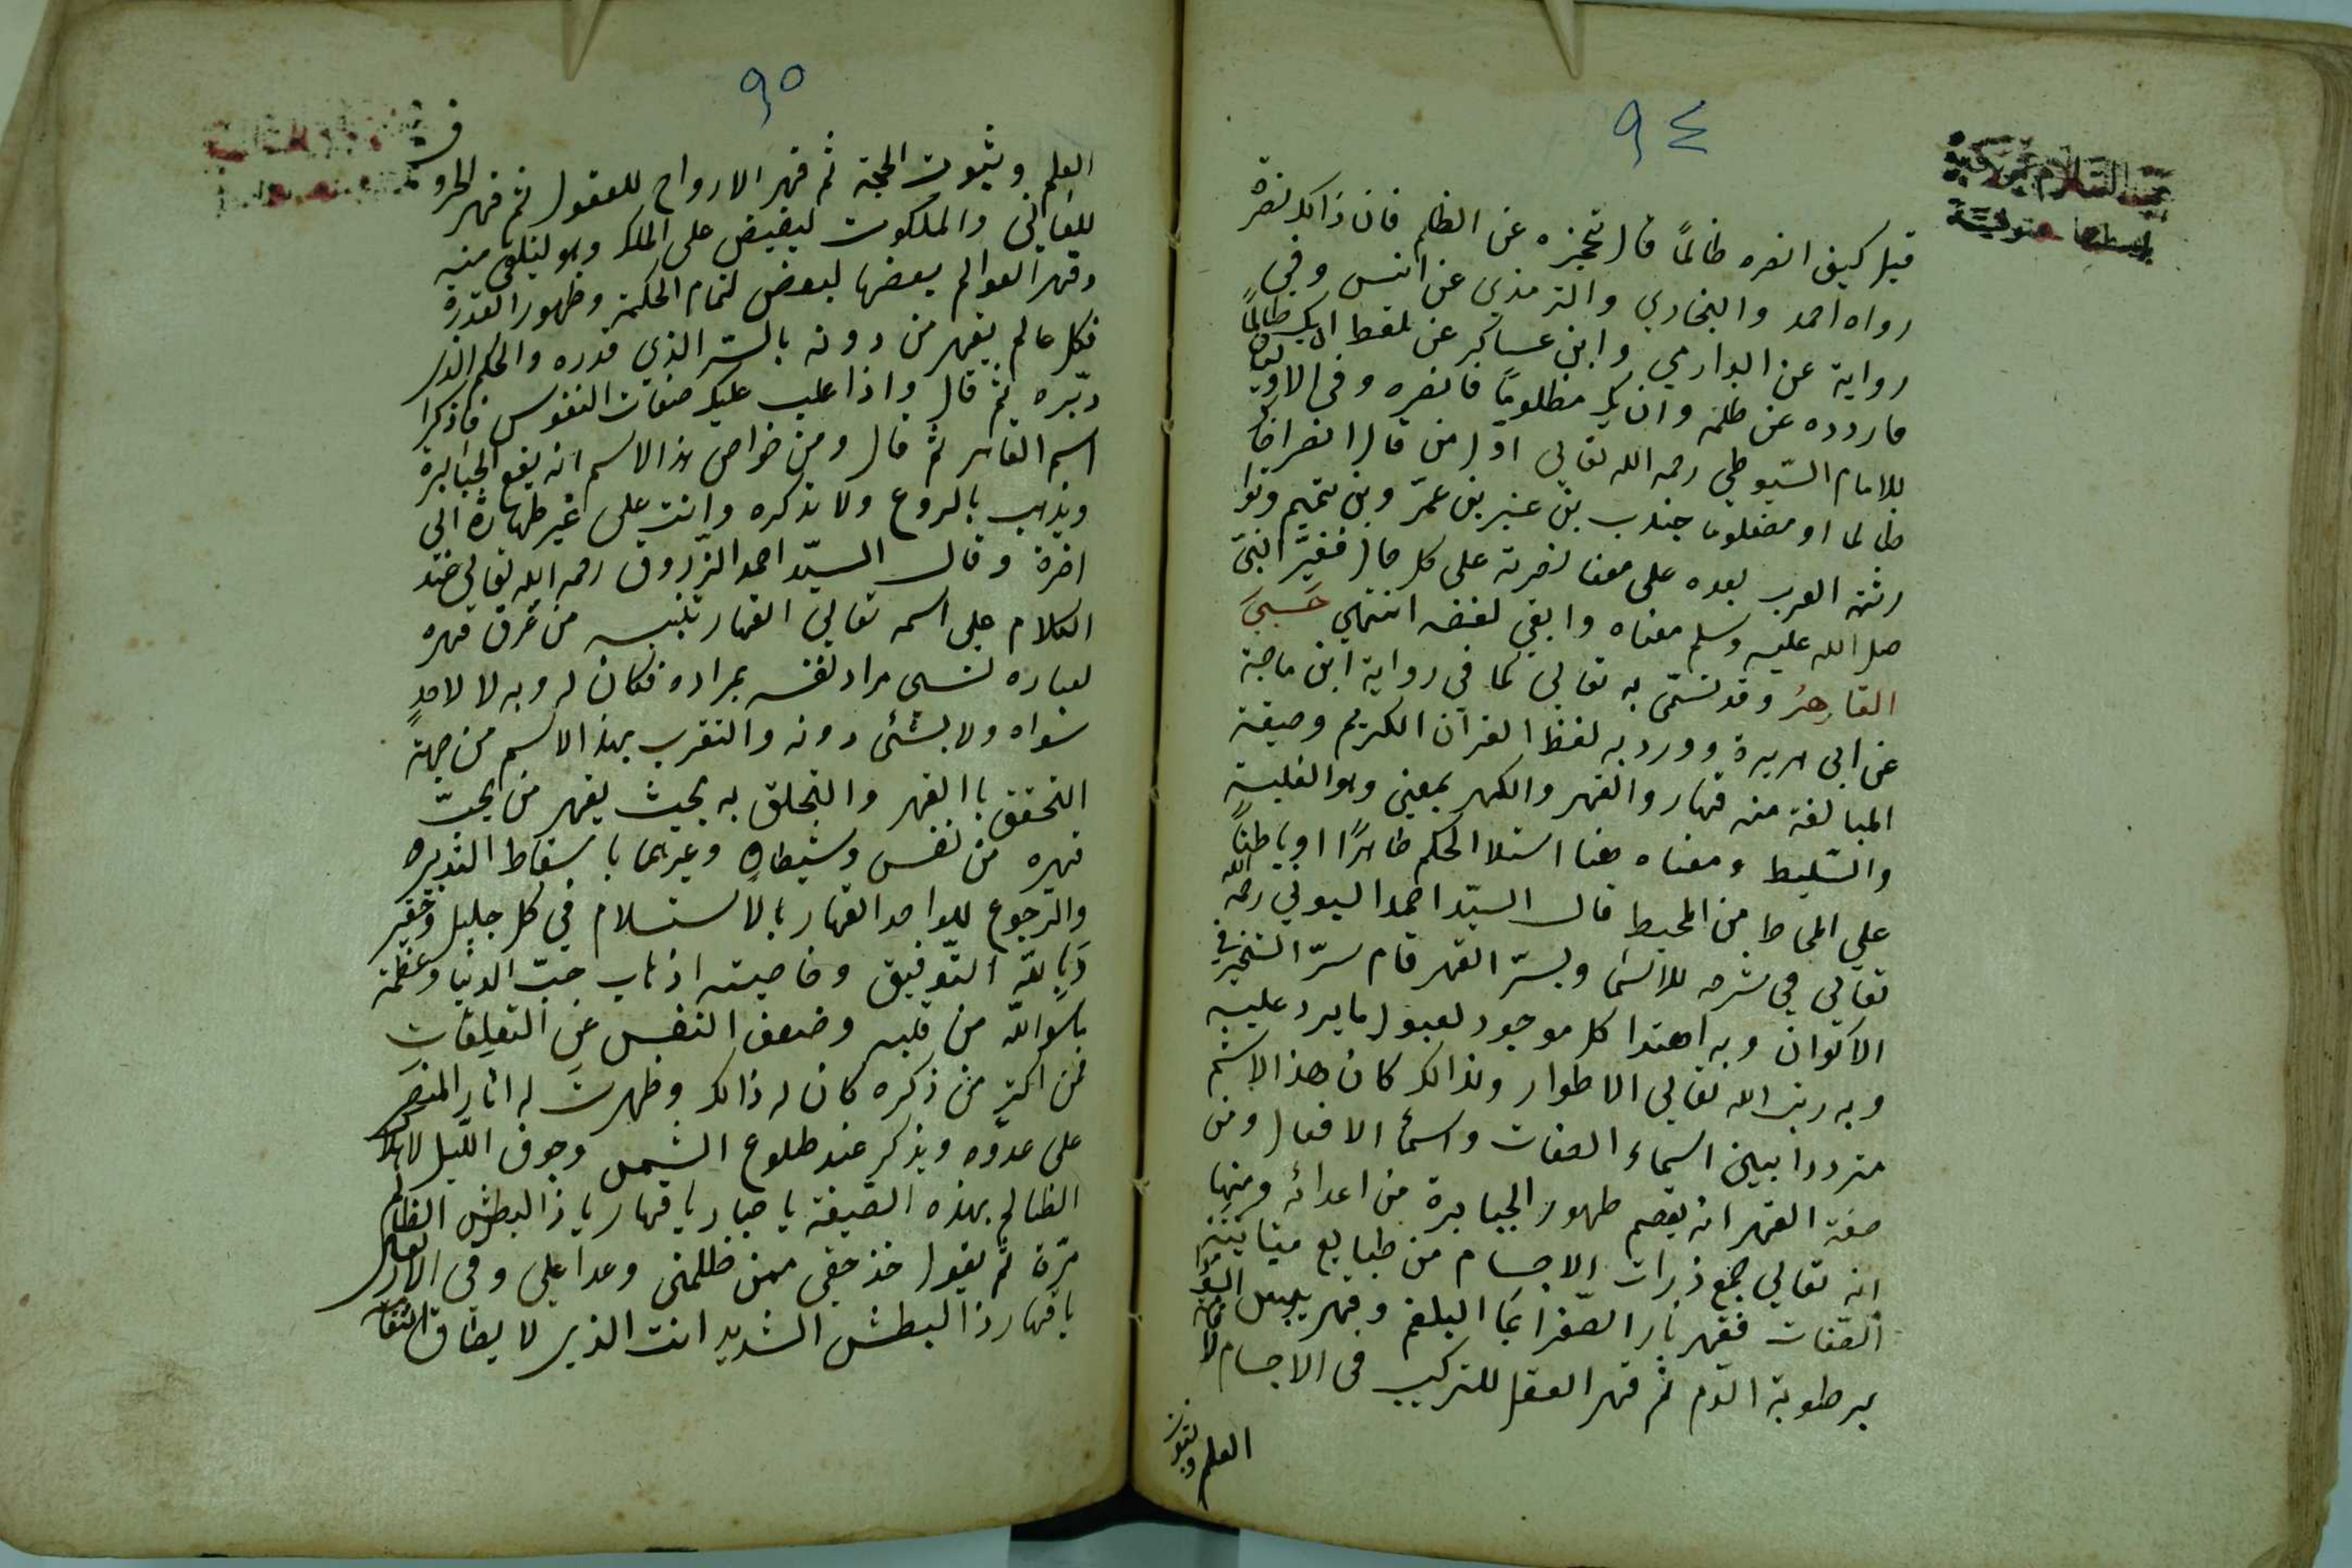 ٩٤
قيل كيف انصره ظالمًا قال تحجزه عن الظلم فان ذالك نصره
رواه احمد والبخاري والترمذي عن انس وفي
رواية عن الدارمي وابن عساكر عن بلفظ ان يك ظالمًا
فاردده عن ظلمه وان يك مظلومًا فانصره وفي الاوايل
للامام السّيوطي رحمه الله تعالى اوّل من قال انصر اخاك
ظالما او مضلوما جندب بن عنبر بن عمرّ وبن تميم
رثته العرب بعده على معنا نصرته على كل حال فغيّر النبيّ
صلى الله عليه وسلم معناه وابقى لفضه انتهي حَسْبِيَ
القاهِرُ وقد تسمّى به تعالى كما في رواية ابن ماجة
عن ابى هريرة وورد به لفظ القرآن الكريم وصيغة
المبالغة منه قهار والقهر والكهر بمعني وهو الغلبة
والتسليط ومعناه هنا استلا الحكم ظاهرًا او باطنًا
على المحاط من المحيط قال السيّد احمد البوني رحمه الله
تعالى في شرحه للاسمآ وبسرّ القهر قام سرّ التسخير في
الاكوان وبه اهتدا كل موجود لقبول ما يرد عليه
وبه رتب الله تعالى الاطوار ولذالك كان هذا الاسم
مترددا بين اسماء الصفات واسمآ الافعال ومن
صفة القهر انه يقصم ظهور الجبابرة من اعدائه ومنها
انه تعالى جمع ذرات الاجسام من طبايع متباينة
الصّفات فقهر نار الصّفرا بمآ البلغم وقهر يبس السودا
برطوبة الدّم ثم قهر العقل للتركيب فى الاجسام
العلم وثبوت
٩٥
العلم وثبوت الحجة ثم قهر الارواح للعقول ثم قهر الحروف
للمعاني والملكوت ليفيض على الملك وهو ليتلقى منه
وقهر العوالم بعضها لبعض لتمام الحكمة وظهور القدرة
فكل عالم يقهر من دونه بالسّر الذي قدره والحكم الذي
دبّره ثم قال واذا غلب عليك صفات النفوس فاذكر
اسم القاهر ثم قال ومن خواص هذا الاسم انه يقمع الجبابرة
ويذهب بالروع ولا تذكره وانت على غير طهارة الى
اخره وقال السيّد احمد الزّروق رحمه الله تعالى عند
الكلام على اسمه تعالى القهار تنبيه من عرف قهره
لعباده نسى مراد نفسه بمراده فكان له وبه لا لاحدٍ
سواه ولا بشئى دونه والتقرب بهذا الاسم من جهة
التحقق باالقهر والتخلق به بحيث يقهر من يحبّ
قهره من نفس وشيطان وغيرهما باسقاط التدبير
والرّجوع للواحد القهار بالاستسلام في كل جليل وحقير
وَباللّه التّوفيق وخاصيته اذهاب حبّ الدنيا وعظمة
ما سوا اللّه من قلبه وضعف النفس عن التعلقات
فمن اكثر من ذكره كان له ذالك وظهرت له اثار النصر
على عدوّه ويذكر عند طلوع الشمس وجوف اللّيل لاهلاك
الظالم بهذه الصيغة يا جبار يا قهار يا ذا البطش
مرّة ثم يقول خذ حقي ممن ظلمنى وعدا علي وفى
يا قهار ذا البطش الشديد انت الذي لا يطاق انتقامه